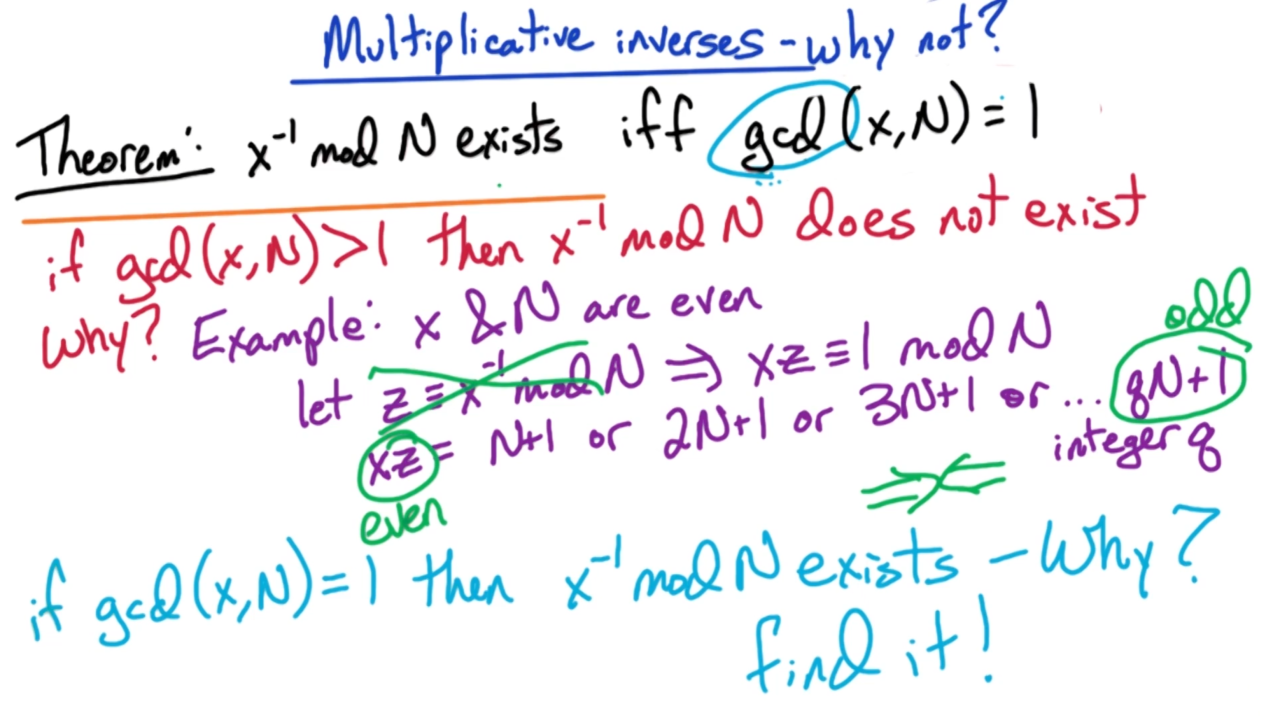 Multiplicative inverses - why not?
Theorem: x⁻¹ mod N exists iff gcd(x,N) = 1
if gcd(x,N) > 1 then x⁻¹ mod N does not exist
Why? Example: x & N are even
odd
let z ≡ x⁻¹ mod N ⇒ xz ≡ 1 mod N
xz = N+1 or 2N+1 or 3N+1 or ... qN+1
integer q
even
if gcd(x,N) = 1 then x⁻¹ mod N exists - Why?
find it!